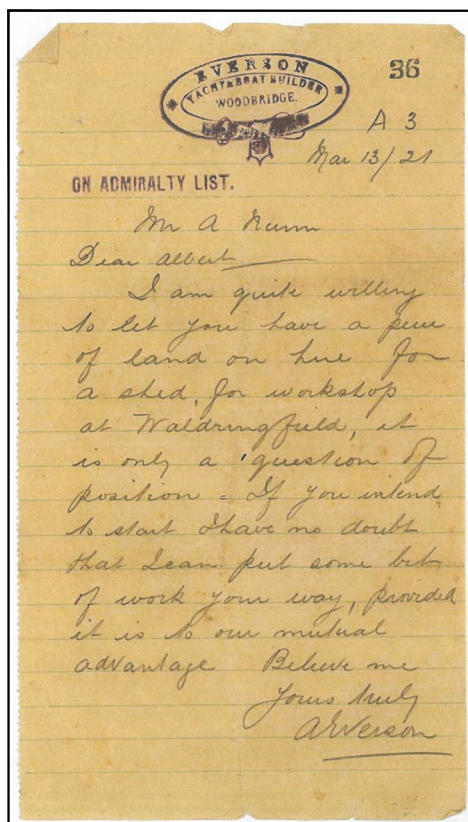 EVERSON
YACHT & BOAT BUILDER
WOODBRIDGE.
36
A 3
Mar 13/21
ON ADMIRALTY LIST.
Mr A Nunn
Dear Albert
I am quite willing
to let you have a piece
of land on hire for
a shed, for workshop
at Waldringfield, it
is only a question of
position = If you intend
to start I have no doubt
that I can put some bit
of work your way, provided
it is to our mutual
advantage Believe me
Yours truly
A Everson